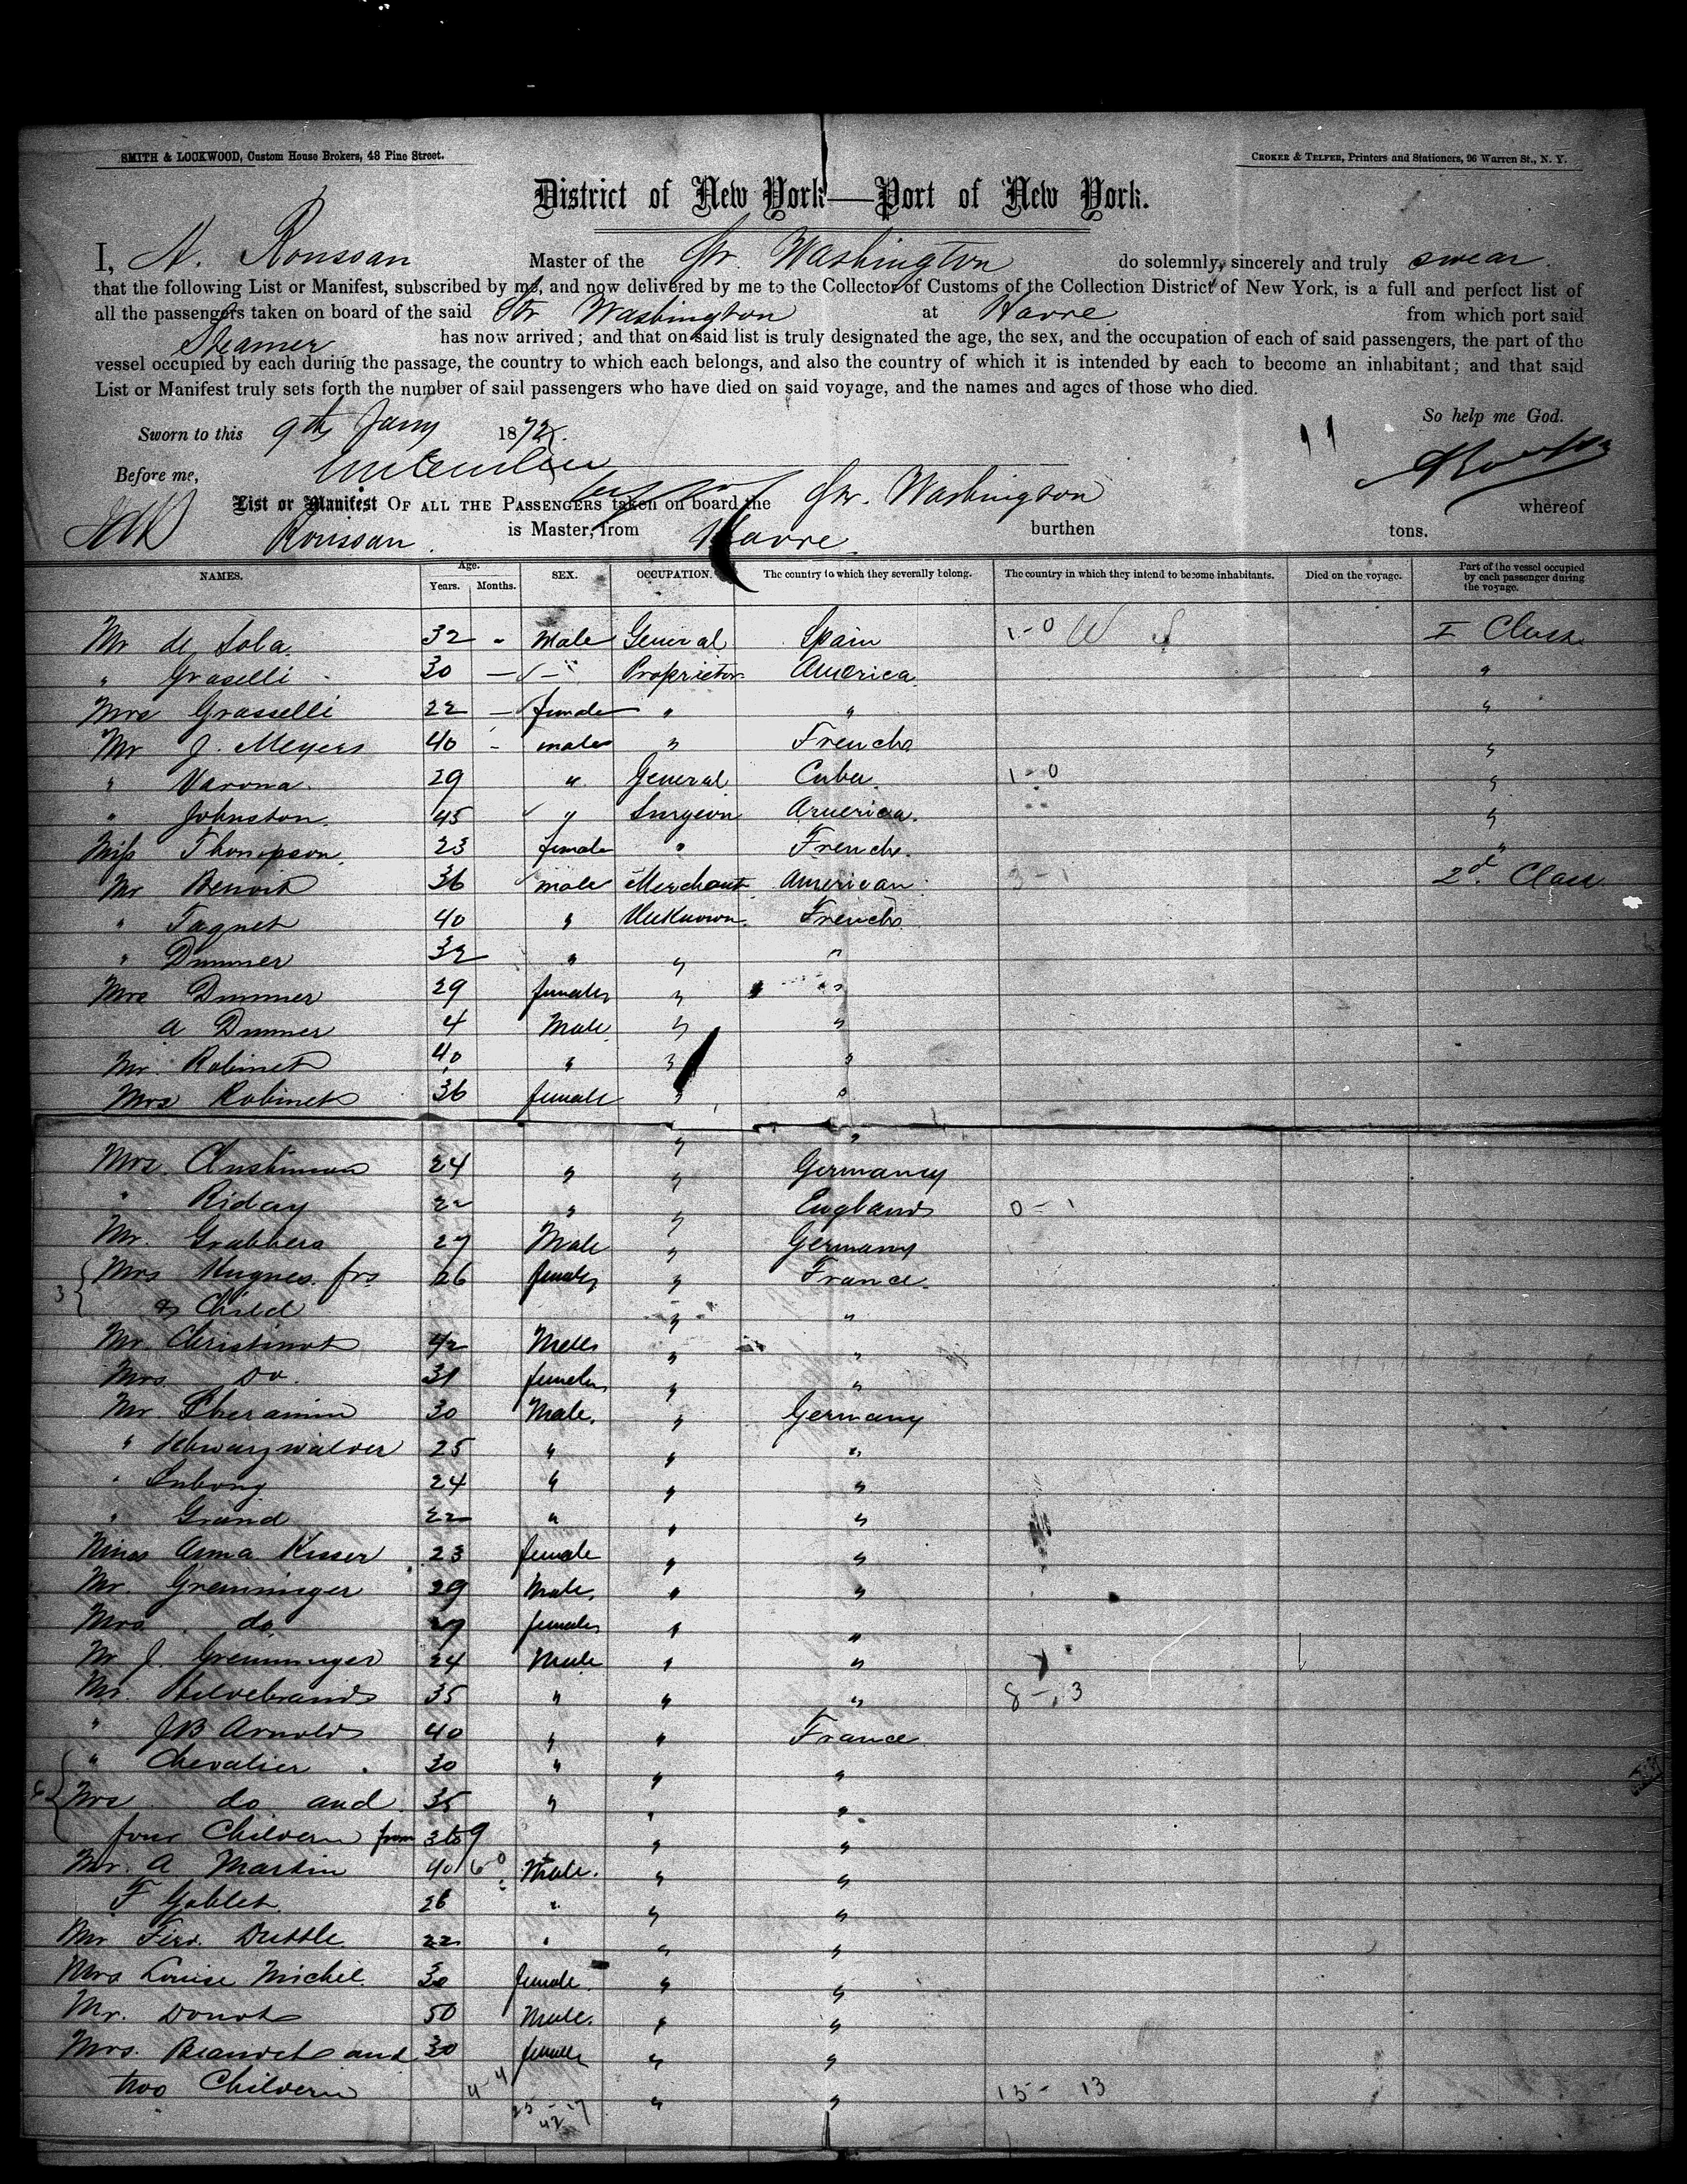 SMITH & LOCKWOOD, Custom House Brokers, 48 Pine Street.
CROKER & TELFER, Printers and Stationers, 96 Warren St., N. Y.
District of New York—Port of New York.
I, A. Roussan Master of the Str. Washington do solemnly, sincerely and truly swear
that the following List or Manifest, subscribed by me, and now delivered by me to the Collector of Customs of the Collection District of New York, is a full and perfect list of
all the passengers taken on board of the said Str Washington at Havre from which port said
Steamer has now arrived; and that on said list is truly designated the age, the sex, and the occupation of each of said passengers, the part of the
vessel occupied by each during the passage, the country to which each belongs, and also the country of which it is intended by each to become an inhabitant; and that said
List or Manifest truly sets forth the number of said passengers who have died on said voyage, and the names and ages of those who died.
So help me God.
Sworn to this 9th Jany 1872.
Before me,
List or Manifest OF ALL THE PASSENGERS taken on board the Str. Washington whereof
Roussan is Master, from Havre burthen tons.
NAMES. Age. Years. Months. SEX. OCCUPATION. The country to which they severally belong. The country in which they intend to become inhabitants. Died on the voyage. Part of the vessel occupied by each passenger during the voyage.
Mr de Sola 32 - Male General Spain 1-0 W S I Class
" Graselli 30 — " Proprietor America "
Mrs Grasselli 22 — female " " "
Mr J. Meyers 40 - male " French "
" Varona 29 " General Cuba 1-0 "
" Johnston 45 " Surgeon America "
Miss Thompson 23 female " French "
Mr Benoit 36 male Merchant American 3-1 2d Class
" Taquet 40 " Unknown French
" Dummer 32 " " "
Mrs Dummer 29 female " "
a Dummer 4 Male " "
Mr Robinet 40 " " "
Mrs Robinet 36 female " "
" "
Mrs. 24 " " Germany
" Riday 22 " " England 0-1
Mr. Grabbers 27 Male " Germany
3 { Mrs Hugnes frs 26 female " France
& Child " "
Mr Christinot 42 Male " "
Mrs do. 31 female " "
Mr. 30 Male. " Germany
" Schwarzwalder 25 " " "
" 24 " " "
" Grand 22 " " "
Anna Kisser 23 female " "
Mr. Gremminger 29 Male " "
Mrs do 29 female " "
Mr J. Gremminger 24 Male " "
Mr. Hildebrand 35 " " " 8-3
" JB Arnold 40 " " France
6 { " Chevalier 30 " " "
Mrs do and 35 " " "
four Childern from 3 to 9 " "
Mr. A Martin 40 Male. " "
F Goblet 26 " " "
Mr Ferd. Duttle 22 " " "
Mrs Louise Michel 30 female " "
Mr. Donot 50 Male. " "
Mrs. and 30 female " "
two Childern 4-4 " " 15-13
25-17
42